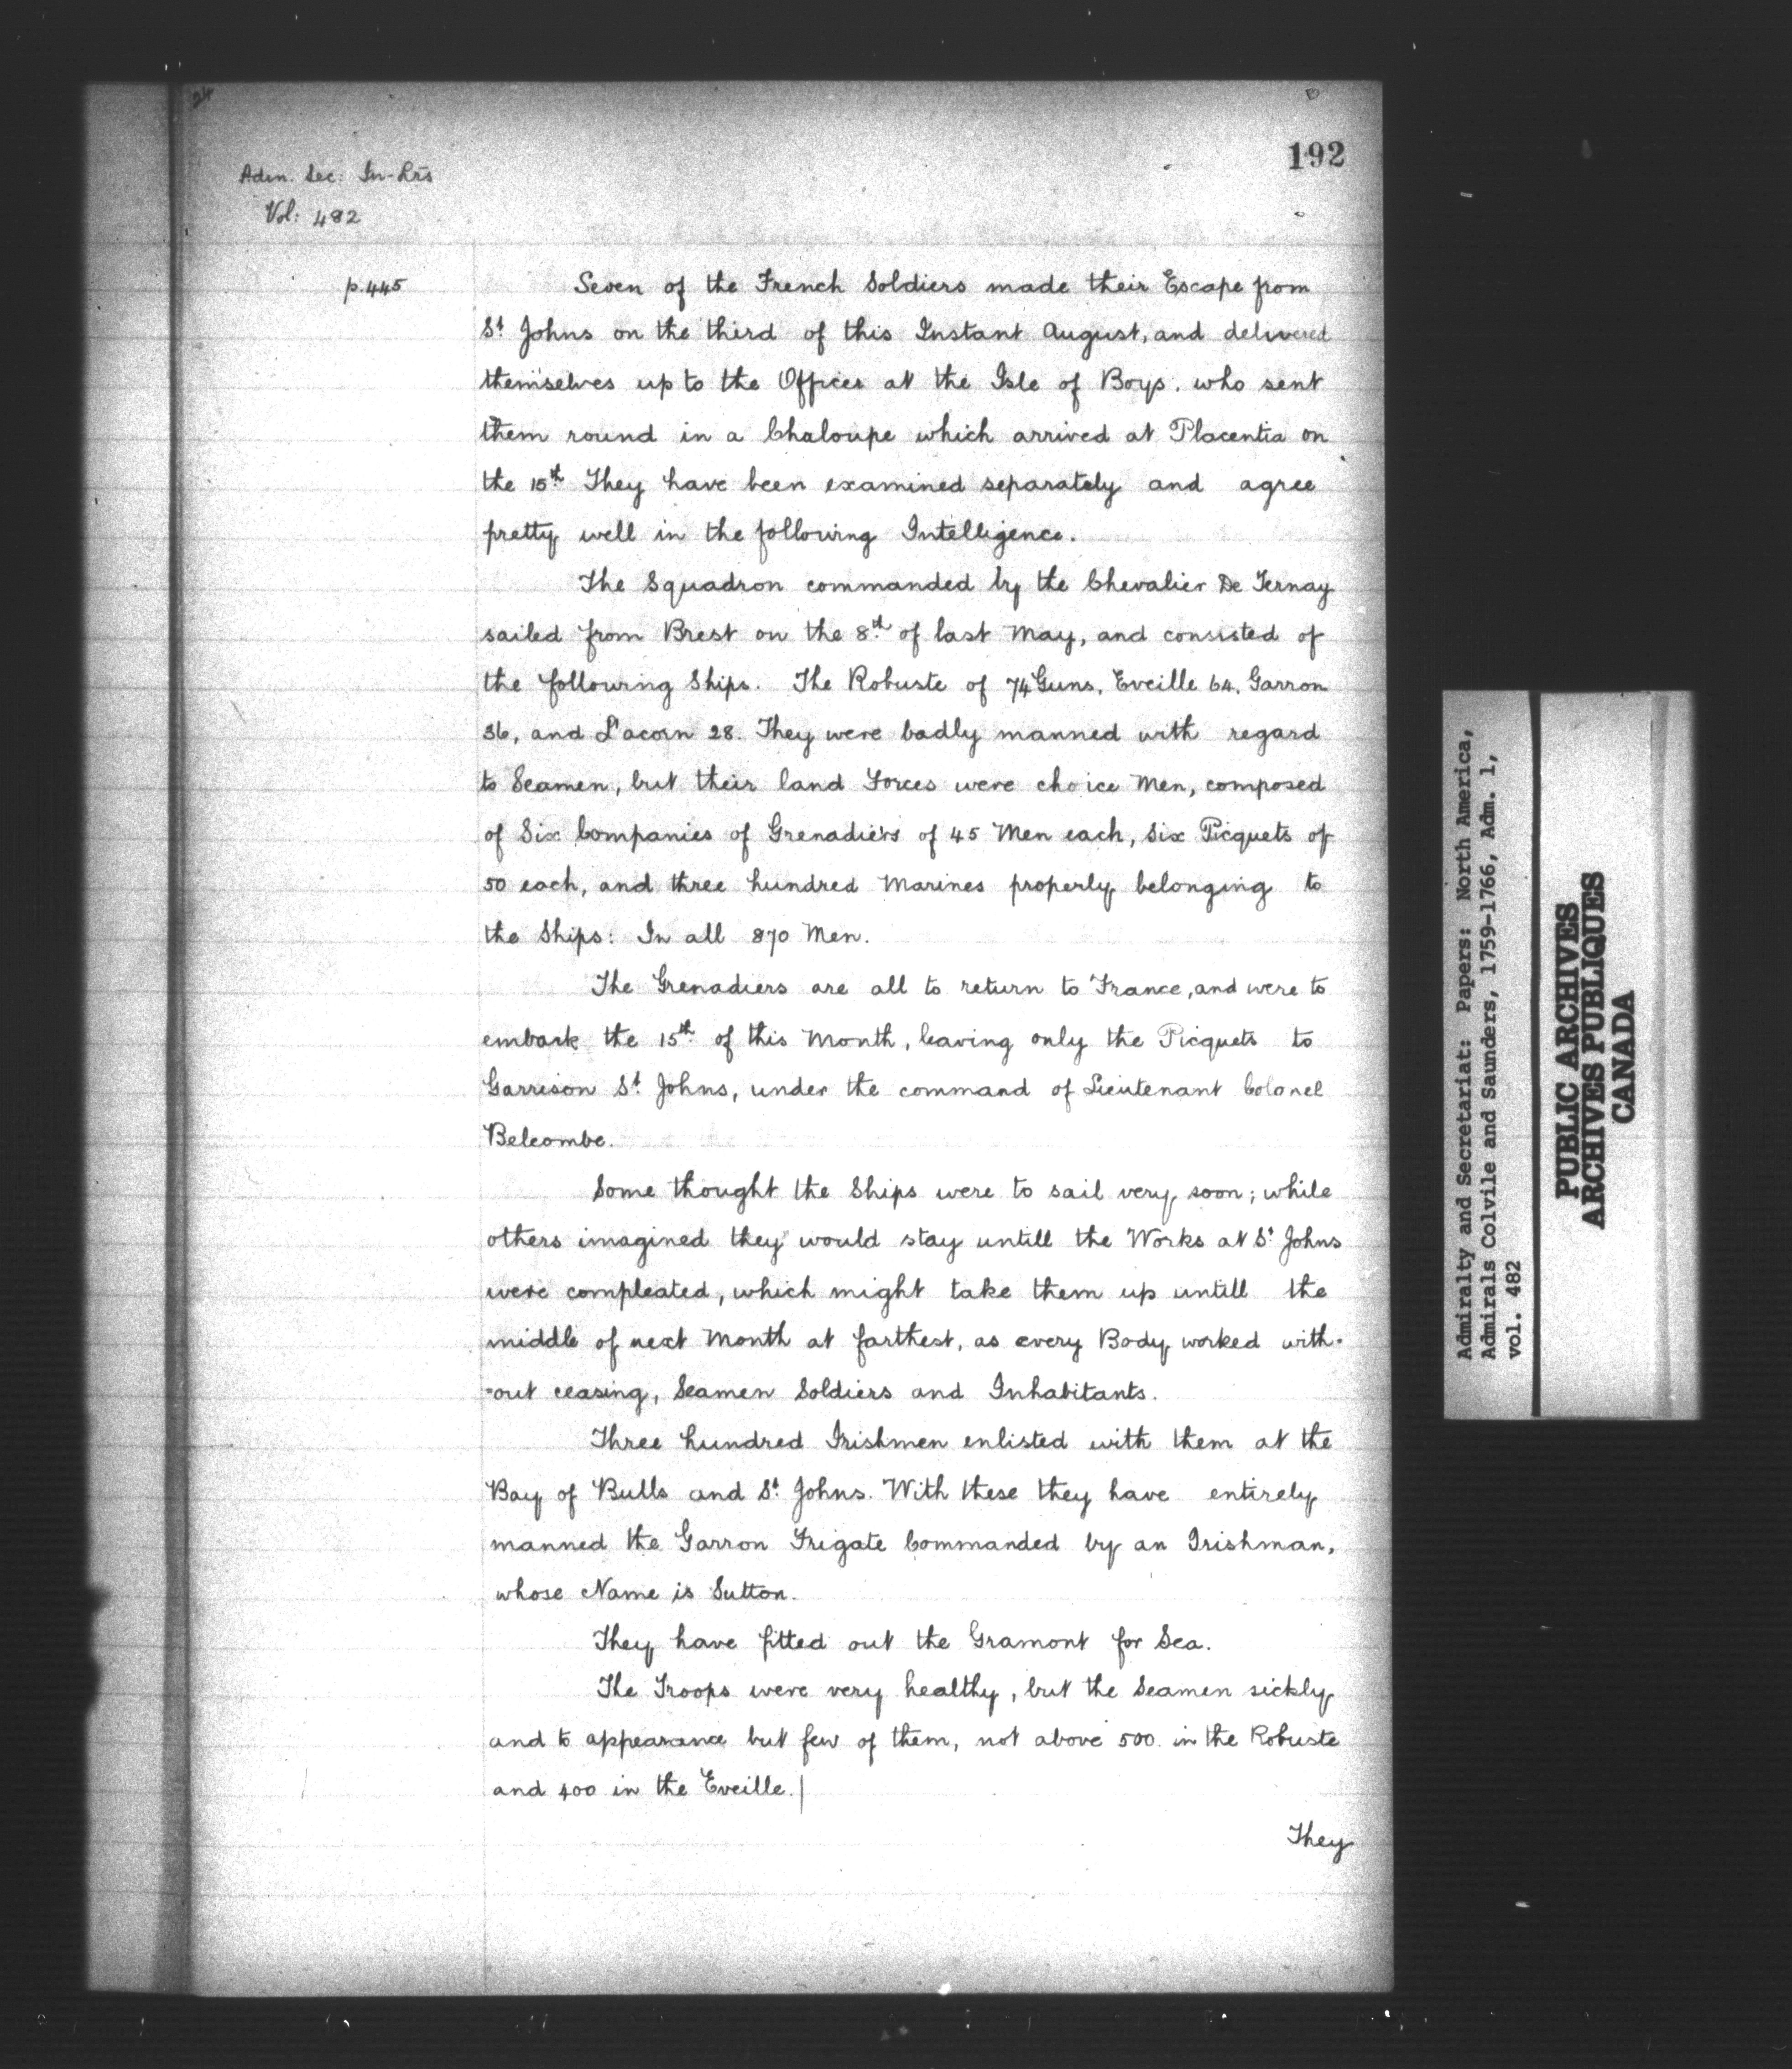 24
192
Adm. Sec: In-Lrs
Vol: 482
p. 445
Seven of the French Soldiers made their Escape from
St. Johns on the third of this Instant August, and delivered
themselves up to the Officer at the Isle of Boys. who sent
them round in a Chaloupe which arrived at Placentia on
the 15th. They have been examined separately and agree
pretty well in the following Intelligence.
The Squadron commanded by the Chevalier De Ternay
sailed from Brest on the 8th. of last May, and consisted of
the following Ships. The Robuste of 74 Guns, Eveille 64. Garron
36, and L'acorn 28. They were badly manned with regard
to Seamen, but their land Forces were choice Men, composed
of Six Companies of Grenadiers of 45 Men each, Six Picquets of
50 each, and three hundred Marines properly belonging to
the Ships: In all 870 Men.
The Grenadiers are all to return to France, and were to
embark the 15th. of this Month, leaving only the Picquets to
Garrison St. Johns, under the command of Lieutenant Colonel
Belcombe.
Some thought the Ships were to sail very soon; while
others imagined they would stay untill the Works at St. Johns
were compleated, which might take them up untill the
middle of next Month at farthest, as every Body worked with-
-out ceasing, Seamen Soldiers and Inhabitants.
Three hundred Irishmen enlisted with them at the
Bay of Bulls and St. Johns. With these they have entirely
manned the Garron Frigate Commanded by an Irishman,
whose Name is Sutton.
They have fitted out the Gramont for Sea.
The Troops were very healthy, but the Seamen sickly
and to appearance but few of them, not above 500 in the Robuste
and 400 in the Eveille.
They
Admiralty and Secretariat: Papers: North America,
Admirals Colvile and Saunders, 1759-1766, Adm. 1,
vol. 482
PUBLIC ARCHIVES
ARCHIVES PUBLIQUES
CANADA